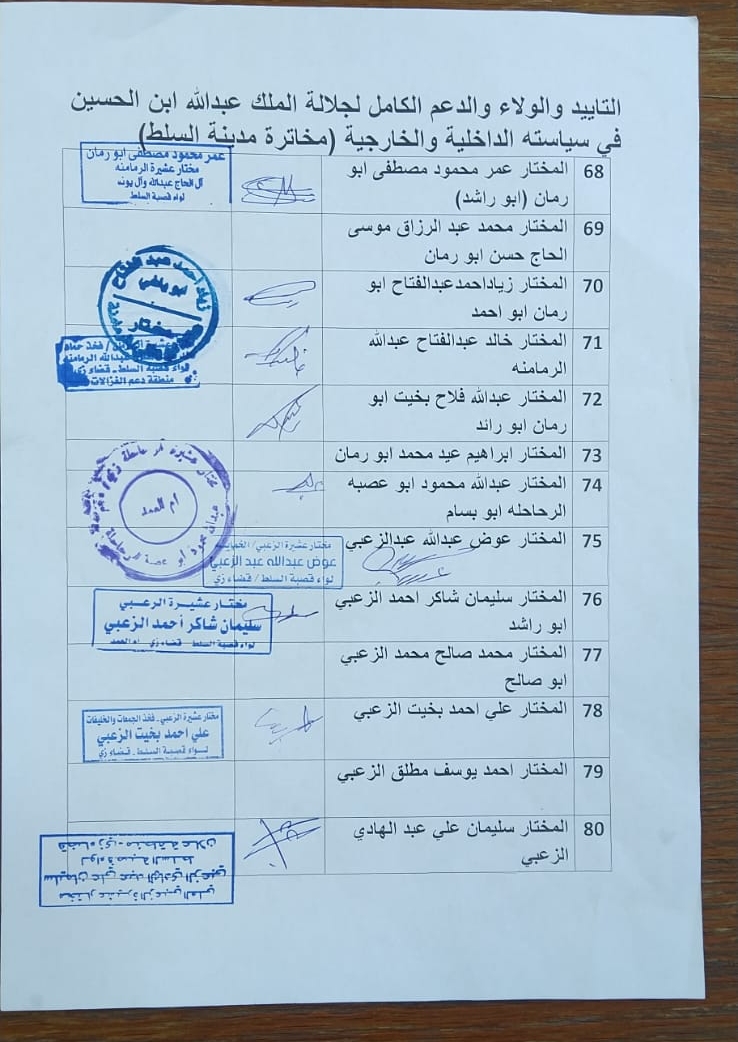 التاييد والولاء والدعم الكامل لجلالة الملك عبدالله ابن الحسين
في سياسته الداخلية والخارجية (مخاترة مدينة السلط)
68 المختار عمر محمود مصطفى ابو
رمان (ابو راشد)
عمر محمود مصطفى ابو رمان
مختار عشيرة الرمامنه
آل الحاج عبدالله وآل يونس
لواء قصبة السلط
69 المختار محمد عبد الرزاق موسى
الحاج حسن ابو رمان
70 المختار زياداحمدعبدالفتاح ابو
رمان ابو احمد
71 المختار خالد عبدالفتاح عبدالله
الرمامنه
عبدالله الرمامنه
لواء قصبة السلط - قضاء زي
72 المختار عبدالله فلاح بخيت ابو
رمان ابو رائد
73 المختار ابراهيم عيد محمد ابو رمان
74 المختار عبدالله محمود ابو عصبه
الرحاحله ابو بسام
ام العمد
75 المختار عوض عبدالله عبدالزعبي
مختار عشيرة الزعبي /
عوض عبدالله عبد الزعبي
لواء قصبة السلط / قضاء زي
76 المختار سليمان شاكر احمد الزعبي
ابو راشد
مختار عشيرة الزعبي
سليمان شاكر أحمد الزعبي
لواء قصبة السلط - قضاء زي - ام العمد
77 المختار محمد صالح محمد الزعبي
ابو صالح
78 المختار علي احمد بخيت الزعبي
مختار عشيرة الزعبي - فخذ الجمعات والخليفات
علي احمد بخيت الزعبي
لواء قصبة السلط - قضاء زي
79 المختار احمد يوسف مطلق الزعبي
80 المختار سليمان علي عبد الهادي
الزعبي
مختار عشيرة الزعبي العلي
سليمان علي عبد الهادي الزعبي
لواء قصبة السلط
قضاء زي - منطقة علان